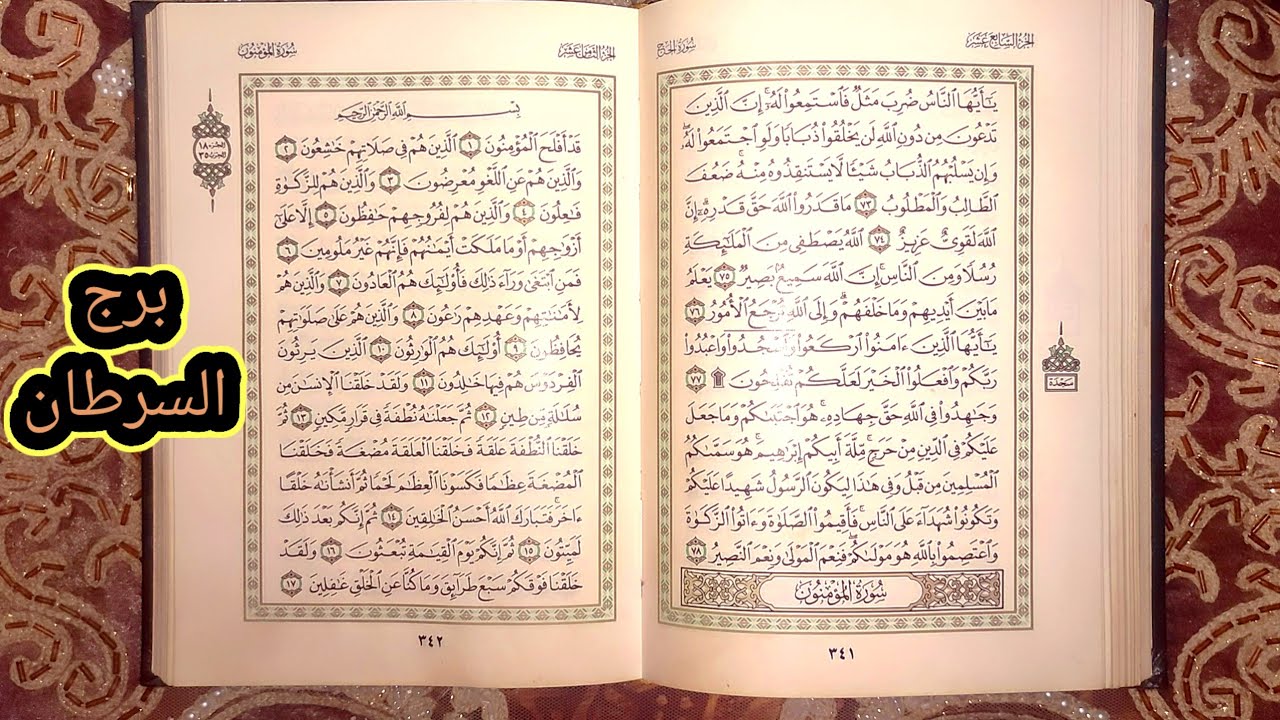 الجزء السابع عشر
سورة الحج
يَٰٓأَيُّهَا ٱلنَّاسُ ضُرِبَ مَثَلٌ فَٱسْتَمِعُوا۟ لَهُۥٓ ۚ إِنَّ ٱلَّذِينَ
تَدْعُونَ مِن دُونِ ٱللَّهِ لَن يَخْلُقُوا۟ ذُبَابًا وَلَوِ ٱجْتَمَعُوا۟ لَهُۥ ۖ
وَإِن يَسْلُبْهُمُ ٱلذُّبَابُ شَيْـًٔا لَّا يَسْتَنقِذُوهُ مِنْهُ ۚ ضَعُفَ
ٱلطَّالِبُ وَٱلْمَطْلُوبُ ٧٣ مَا قَدَرُوا۟ ٱللَّهَ حَقَّ قَدْرِهِۦٓ ۗ إِنَّ
ٱللَّهَ لَقَوِىٌّ عَزِيزٌ ٧٤ ٱللَّهُ يَصْطَفِى مِنَ ٱلْمَلَٰٓئِكَةِ
رُسُلًا وَمِنَ ٱلنَّاسِ ۚ إِنَّ ٱللَّهَ سَمِيعٌۢ بَصِيرٌ ٧٥ يَعْلَمُ
مَا بَيْنَ أَيْدِيهِمْ وَمَا خَلْفَهُمْ ۗ وَإِلَى ٱللَّهِ تُرْجَعُ ٱلْأُمُورُ ٧٦
يَٰٓأَيُّهَا ٱلَّذِينَ ءَامَنُوا۟ ٱرْكَعُوا۟ وَٱسْجُدُوا۟ وَٱعْبُدُوا۟
رَبَّكُمْ وَٱفْعَلُوا۟ ٱلْخَيْرَ لَعَلَّكُمْ تُفْلِحُونَ ۩ ٧٧
وَجَٰهِدُوا۟ فِى ٱللَّهِ حَقَّ جِهَادِهِۦ ۚ هُوَ ٱجْتَبَىٰكُمْ وَمَا جَعَلَ
عَلَيْكُمْ فِى ٱلدِّينِ مِنْ حَرَجٍ ۚ مِّلَّةَ أَبِيكُمْ إِبْرَٰهِيمَ ۚ هُوَ سَمَّىٰكُمُ
ٱلْمُسْلِمِينَ مِن قَبْلُ وَفِى هَٰذَا لِيَكُونَ ٱلرَّسُولُ شَهِيدًا عَلَيْكُمْ
وَتَكُونُوا۟ شُهَدَآءَ عَلَى ٱلنَّاسِ ۚ فَأَقِيمُوا۟ ٱلصَّلَوٰةَ وَءَاتُوا۟ ٱلزَّكَوٰةَ
وَٱعْتَصِمُوا۟ بِٱللَّهِ هُوَ مَوْلَىٰكُمْ ۖ فَنِعْمَ ٱلْمَوْلَىٰ وَنِعْمَ ٱلنَّصِيرُ ٧٨
سُورَةُ المُؤْمِنُونَ
سجدة
٣٤١
الجزء الثامن عشر
سورة المؤمنون
بِسْمِ ٱللَّهِ ٱلرَّحْمَٰنِ ٱلرَّحِيمِ
قَدْ أَفْلَحَ ٱلْمُؤْمِنُونَ ١ ٱلَّذِينَ هُمْ فِى صَلَاتِهِمْ خَٰشِعُونَ ٢
وَٱلَّذِينَ هُمْ عَنِ ٱللَّغْوِ مُعْرِضُونَ ٣ وَٱلَّذِينَ هُمْ لِلزَّكَوٰةِ
فَٰعِلُونَ ٤ وَٱلَّذِينَ هُمْ لِفُرُوجِهِمْ حَٰفِظُونَ ٥ إِلَّا عَلَىٰٓ
أَزْوَٰجِهِمْ أَوْ مَا مَلَكَتْ أَيْمَٰنُهُمْ فَإِنَّهُمْ غَيْرُ مَلُومِينَ ٦
فَمَنِ ٱبْتَغَىٰ وَرَآءَ ذَٰلِكَ فَأُو۟لَٰٓئِكَ هُمُ ٱلْعَادُونَ ٧ وَٱلَّذِينَ هُمْ
لِأَمَٰنَٰتِهِمْ وَعَهْدِهِمْ رَٰعُونَ ٨ وَٱلَّذِينَ هُمْ عَلَىٰ صَلَوَٰتِهِمْ
يُحَافِظُونَ ٩ أُو۟لَٰٓئِكَ هُمُ ٱلْوَٰرِثُونَ ١٠ ٱلَّذِينَ يَرِثُونَ
ٱلْفِرْدَوْسَ هُمْ فِيهَا خَٰلِدُونَ ١١ وَلَقَدْ خَلَقْنَا ٱلْإِنسَٰنَ مِن
سُلَٰلَةٍ مِّن طِينٍ ١٢ ثُمَّ جَعَلْنَٰهُ نُطْفَةً فِى قَرَارٍ مَّكِينٍ ١٣ ثُمَّ
خَلَقْنَا ٱلنُّطْفَةَ عَلَقَةً فَخَلَقْنَا ٱلْعَلَقَةَ مُضْغَةً فَخَلَقْنَا
ٱلْمُضْغَةَ عِظَٰمًا فَكَسَوْنَا ٱلْعِظَٰمَ لَحْمًا ثُمَّ أَنشَأْنَٰهُ خَلْقًا
ءَاخَرَ ۚ فَتَبَارَكَ ٱللَّهُ أَحْسَنُ ٱلْخَٰلِقِينَ ١٤ ثُمَّ إِنَّكُم بَعْدَ ذَٰلِكَ
لَمَيِّتُونَ ١٥ ثُمَّ إِنَّكُمْ يَوْمَ ٱلْقِيَٰمَةِ تُبْعَثُونَ ١٦ وَلَقَدْ
خَلَقْنَا فَوْقَكُمْ سَبْعَ طَرَآئِقَ وَمَا كُنَّا عَنِ ٱلْخَلْقِ غَٰفِلِينَ ١٧
الجزء ١٨
الحزب ٣٥
٣٤٢
برج
السرطان